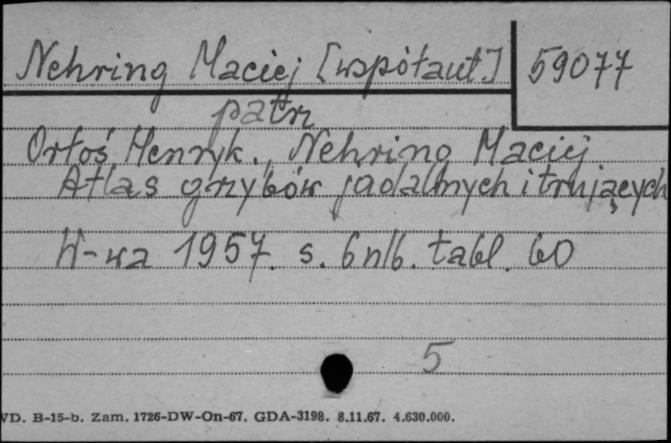 Nehring Maciej [współaut.] 59077
patrz
Ortoś Henryk., Nehring Maciej
Atlas grzybów jadalnych i trujących
W-wa 1957. s. 6 nlb. tabl. 60
5
VD. B-15-b. Zam. 1726-DW-On-67. GDA-3198. 8.11.67. 4.630.000.